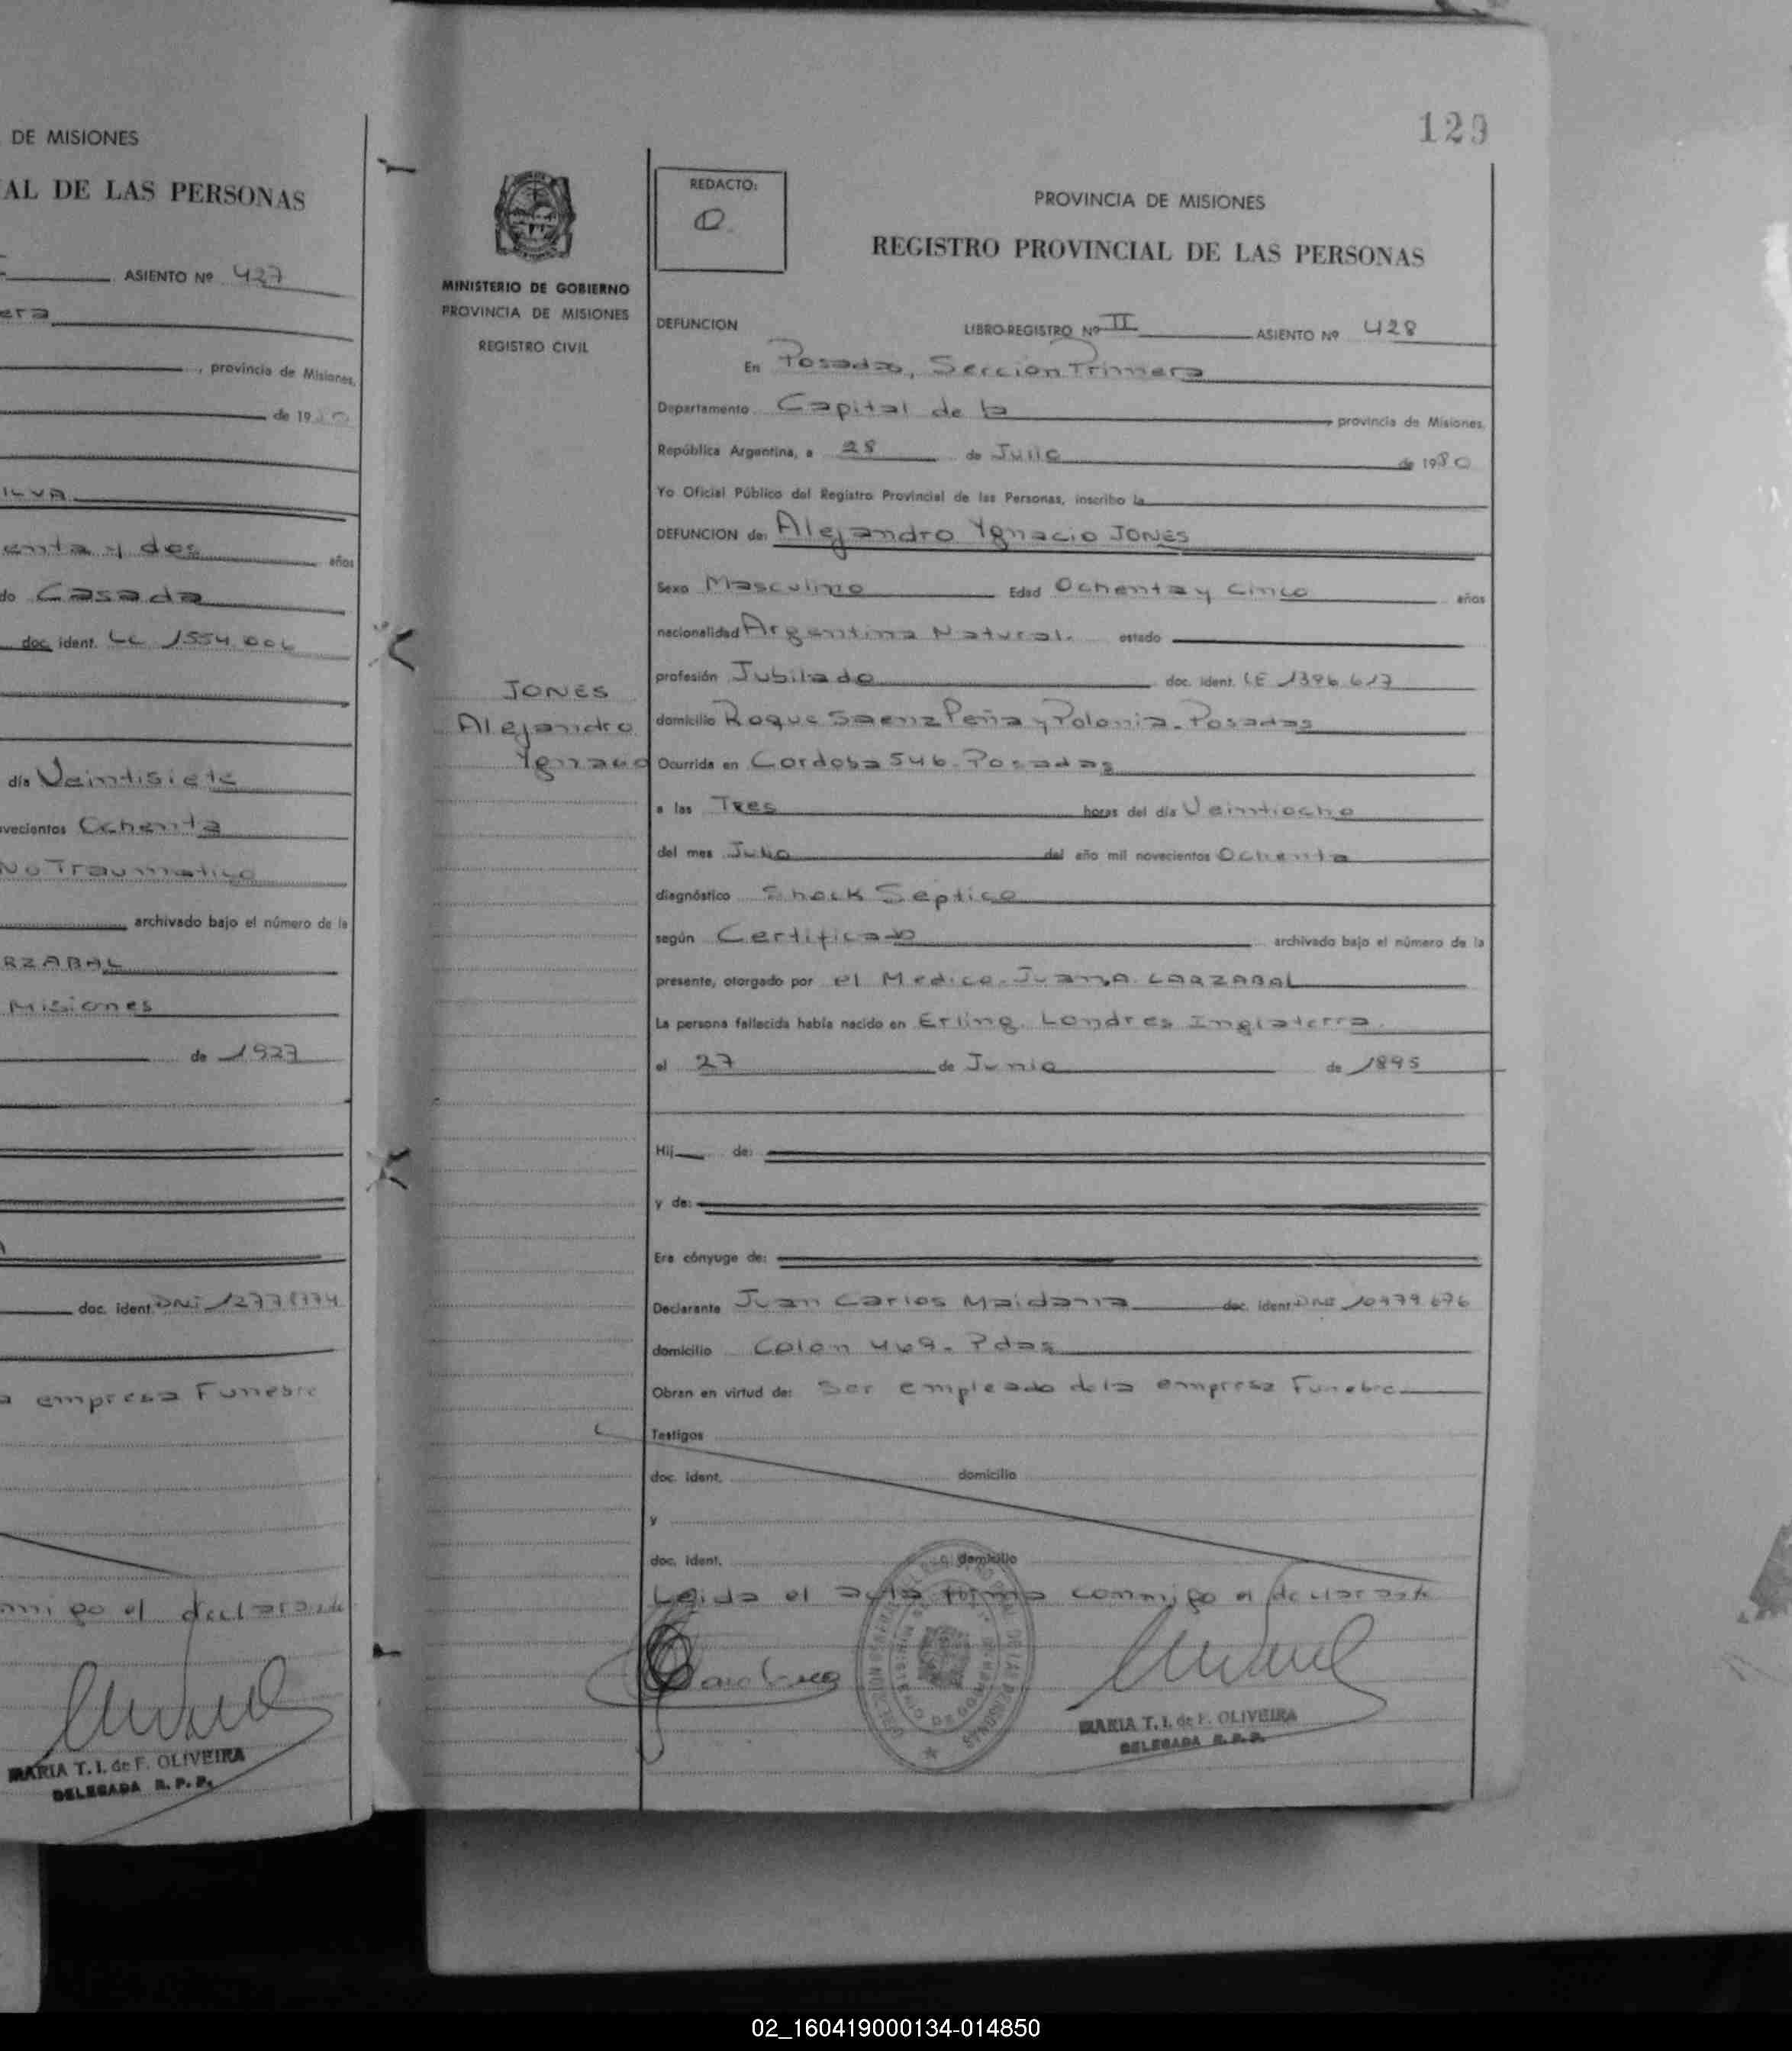 DE MISIONES
AL DE LAS PERSONAS
ASIENTO Nº 427
era
, provincia de Misiones,
de 19
ILVA
enta y dos años
do Casada
doc. ident. LC 1554.006
día Veintisiete
vecientos Ochenta
No Traumatico
archivado bajo el número de la
RZABAL
Misiones
de 1927
doc. ident. DNI
a empresa Funebre
migo el declarante
MARIA T. I. de F. OLIVEIRA
DELEGADA R. P. P.
129
MINISTERIO DE GOBIERNO
PROVINCIA DE MISIONES
REGISTRO CIVIL
JONES
Alejandro
Ygnacio
REDACTO:
PROVINCIA DE MISIONES
REGISTRO PROVINCIAL DE LAS PERSONAS
DEFUNCION LIBRO-REGISTRO Nº II ASIENTO Nº 428
En Posadas, Seccion Primera
Departamento Capital de la provincia de Misiones,
República Argentina, a 28 de Julio de 1980
Yo Oficial Público del Registro Provincial de las Personas, inscribo la
DEFUNCION de: Alejandro Ygnacio JONES
Sexo Masculino Edad Ochenta y Cinco años
nacionalidad Argentina Natural. estado
profesión Jubilado doc. ident. LE 1396.617
domicilio Roque Saenz Peña y Polonia - Posadas
Ocurrida en Cordoba 546 - Posadas
a las Tres horas del día Veintiocho
del mes Julio del año mil novecientos Ochenta
diagnóstico Shock Septico
según Certificado archivado bajo el número de la
presente, otorgado por el Medico - Juan A. LARZABAL
La persona fallecida había nacido en Erling. Londres Inglaterra.
el 27 de Junio de 1895
Hij de:
y de:
Era cónyuge de:
Declarante Juan Carlos Maidana doc. ident. DNI 10479.676
domicilio Colon 469 - Pdas
Obran en virtud de: Ser empleado de la empresa Funebre
Testigos
doc. ident. domicilio
y
doc. ident. domicilio
Leida el acta firma conmigo el declarante
MARIA T. I. de F. OLIVEIRA
DELEGADA R. P. P.
02_160419000134-014850